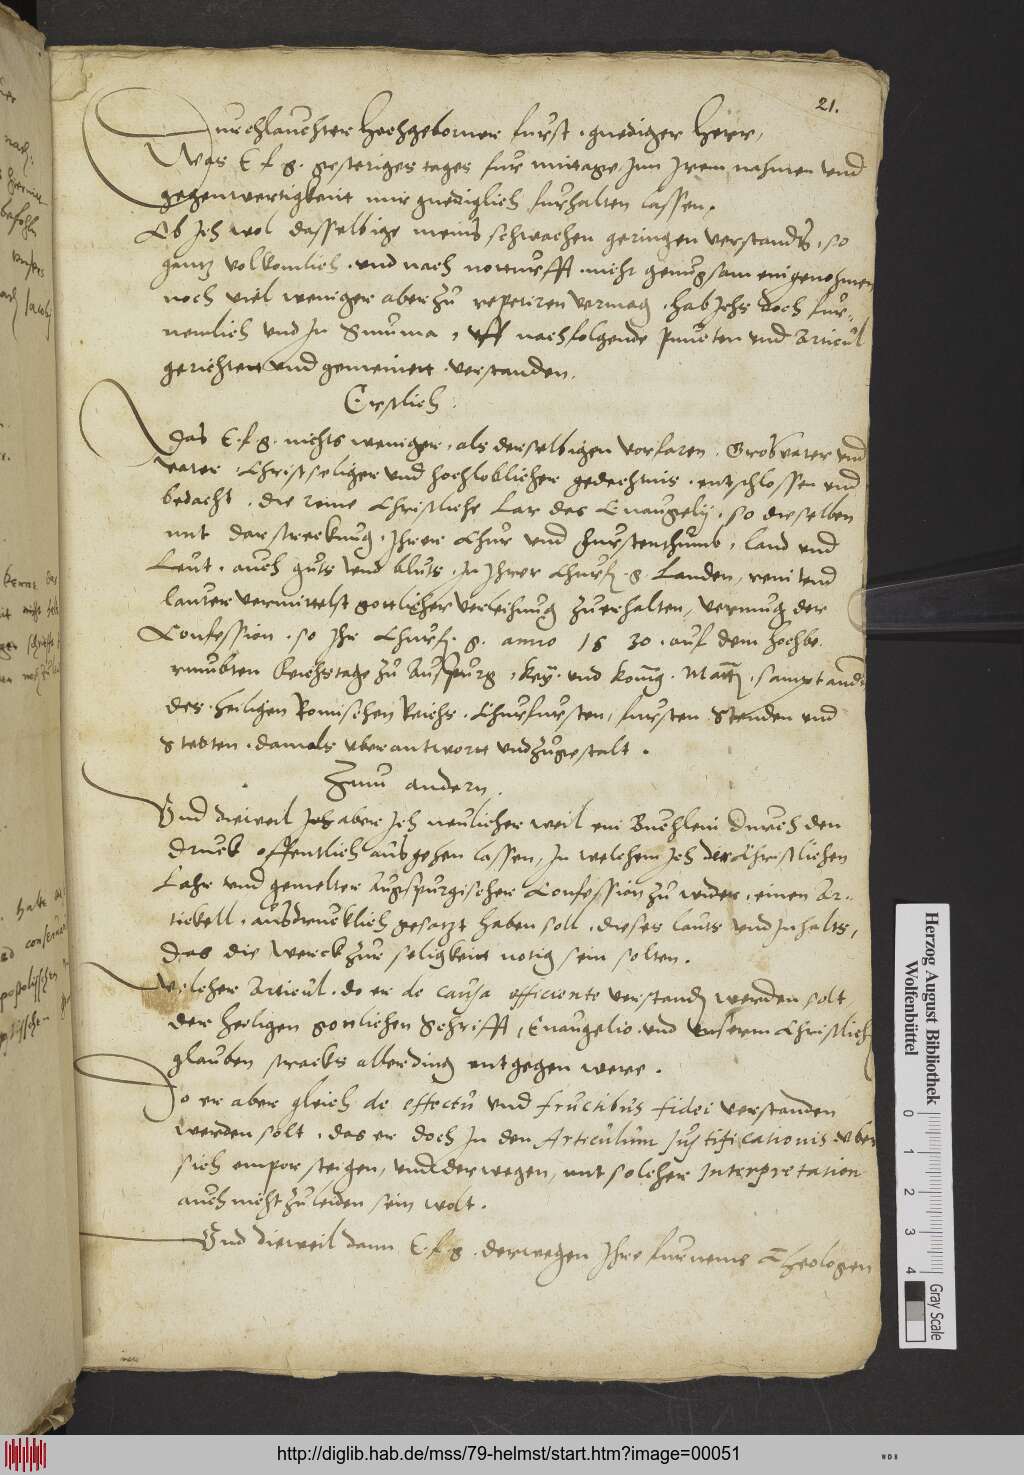 21.
Durchlauchter Hochgeborner furst, gnediger Herr,
Was E f g. gesteriges tages fur mittage Inn Irem nahmen und
gegenwertigkeit mir gnediglich furhalten lassen.
Ob Ich wol dasselbige meins schwachen geringen verstands, so
gantz volkomlich, und nach notturfft, nicht genugsam eingenohmen
noch viel weniger aber zu repetiren vermag, hab Ichs doch fur-
nemlich und In Summa, uff nachfolgende puncten und Articul
gerichtet und gemeinet verstanden.
Erstlich.
Das E. f. g. nichts weniger, als derselbigen vorfaren, Grosvater und
vater, Christseliger und hochloblicher gedechtnis, entschlossen und
bedacht, die reine Christliche Lar des Evangelij, so dieselben
mit darstreckung, Ihrer Chur und Furstenthumb, land und
Leut, auch guts und bluts, In Ihrer Churf. g. Landen, rein und
lauter vermittelst gottlicher verleihung zuerhalten, vermug der
Confession, so Ihr Churf. g. anno 1530. auf dem hochbe-
rumbten Reichstage zu Auspurg, Key. und König. Matt. sampt andern
des heiligen Romischen Reichs, Churfursten, fursten Stenden und
Stedten, damals uberantwort und zugestalt.
Zum andern.
Und dieweil aber Ich neulicher weil ein Buchlein durch den
druck offentlich ausgehen lassen, In welchem Ich der Christlichen
Lahr und gemelter Augspurgischer Confession zu wider, einen Ar-
tickell, ausdrucklich gesatzt haben soll, dieses lauts und Inhalts,
Das die Werck zur seligkeit notig sein solten.
Welcher Articul, do er de causa efficiente verstanden werden solt,
der heiligen gottlichen Schrifft, Evangelio und unserm Christlichen
glauben stracks allerding entgegen were.
Do er aber gleich de effectu und fructibus fidei verstanden
werden solt, das er doch In den Articulum Justificationis
sich empor steigen, und derwegen, mit solcher Interpretation
auch nicht zuleiden sein wolt.
Und dieweil dann E. f. g. derwegen Ihre furneme Theologen
Herzog August Bibliothek
Wolfenbüttel
0 1 2 3 4
Gray Scale
http://diglib.hab.de/mss/79-helmst/start.htm?image=00051